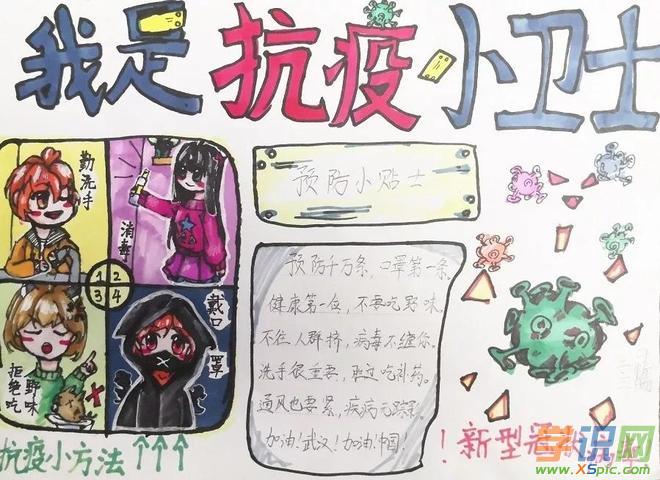 我是抗疫小卫士
勤洗手
消毒
1 2
3 4
拒绝吃
野味
戴口
罩
抗疫小方法↑↑↑
预防小贴士
预防千万条，口罩第一条。
健康第一位，不要吃野味。
不往人群挤，病毒不缠你。
洗手很重要，胜过吃补药。
通风也要紧，疾病无踪影。
加油！武汉！加油！中国！
！新型冠状病毒
学识网
www.XSpic.com